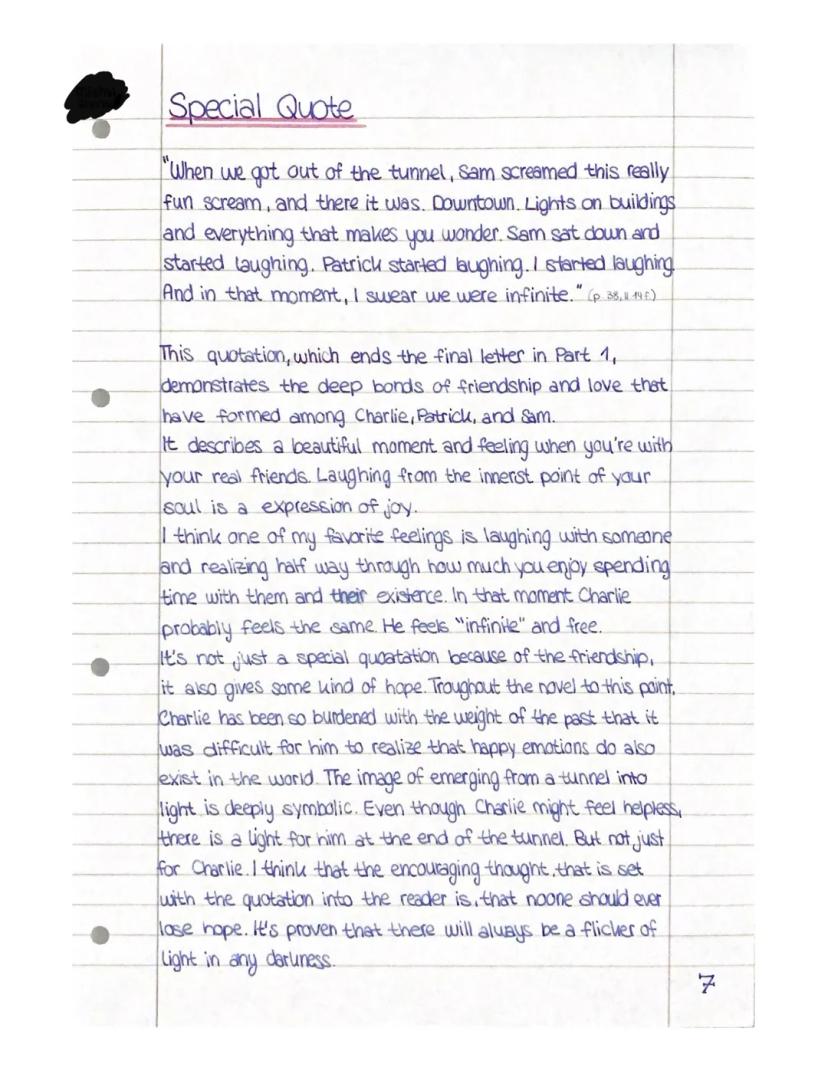 Special Quote
"When we got out of the tunnel, Sam screamed this really
fun scream, and there it was. Downtown. Lights on buildings
and everything that makes you wonder. Sam sat down and
started laughing. Patrick started laughing. I started laughing.
And in that moment, I swear we were infinite." (p. 38, ll. 14 f.)
This quotation, which ends the final letter in Part 1,
demonstrates the deep bonds of friendship and love that
have formed among Charlie, Patrick, and Sam.
It describes a beautiful moment and feeling when you're with
your real friends. Laughing from the innerst point of your
soul is a expression of joy.
I think one of my favorite feelings is laughing with someone
and realizing half way through how much you enjoy spending
time with them and their existence. In that moment Charlie
probably feels the same. He feels "infinite" and free.
It's not just a special quoatation because of the friendship,
it also gives some kind of hope. Troughout the novel to this point,
Charlie has been so burdened with the weight of the past that it
was difficult for him to realize that happy emotions do also
exist in the world. The image of emerging from a tunnel into
light is deeply symbolic. Even though Charlie might feel helpless,
there is a light for him at the end of the tunnel. But not just
for Charlie. I think that the encouraging thought, that is set
with the quotation into the reader is, that noone should ever
lose hope. It's proven that there will always be a flicker of
light in any darkness.
7